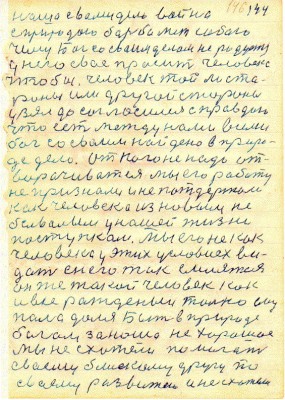 146 144
наша с вами дело война
с природою борьба мет самого
чему Бог со своим делом не родител
у него свое просит человека
чтобы. человек той или ста
роны или другой стороны
узял до согласился с правдою
что ест между нами вами
бог со своим найдено в приро
де дело. от кого не надо от
ворачиватся мы его работу
не признали и не потдержали
как человека из новым не
бывалым у нашей жизни
поступкам. Мы его не как
человека у этих условиех ви
дат с него так смеятся
он же такой человек как
и все рожденыи только ему
пала доля Быт в природе
богам за ношо не хорошое
мы не схотели помогат
своему близкому другу по
своему развитию и не схотели